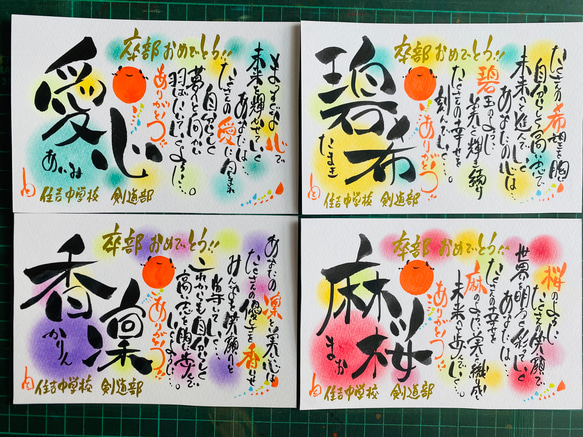 卒部おめでとう!!
愛心
あいみ
ありがとう
まっすぐな心で
未来を見つめていく
あなたは…
たくさんの愛に包まれ
自分らしく
夢へと向かい
羽ばたいていくよ…。
住吉中学校 剣道部
卒部おめでとう!!
碧希
たまき
ありがとう
たくさんの希望を胸に
自分らしく高い志で
未来へと進んでいく
あなたの心は…
碧玉のように
美しく輝き続け
たくさんの幸せを
刻んでいく…。
住吉中学校 剣道部
卒部おめでとう!!
香凜
かりん
ありがとう
あなたの凜とした美しい心は
たくさんの優しさを香らせ
みんなを笑顔へと
導いていく…
これからも自分らしく
高い志を胸に歩んで
住吉中学校 剣道部
卒部おめでとう!!
麻桜
まお
ありがとう
桜のように
たくさんの笑顔で
世界を明るく彩っていく
あなたは…
たくさんの幸せを
麻のように
未来へと歩んでいく…。
住吉中学校 剣道部